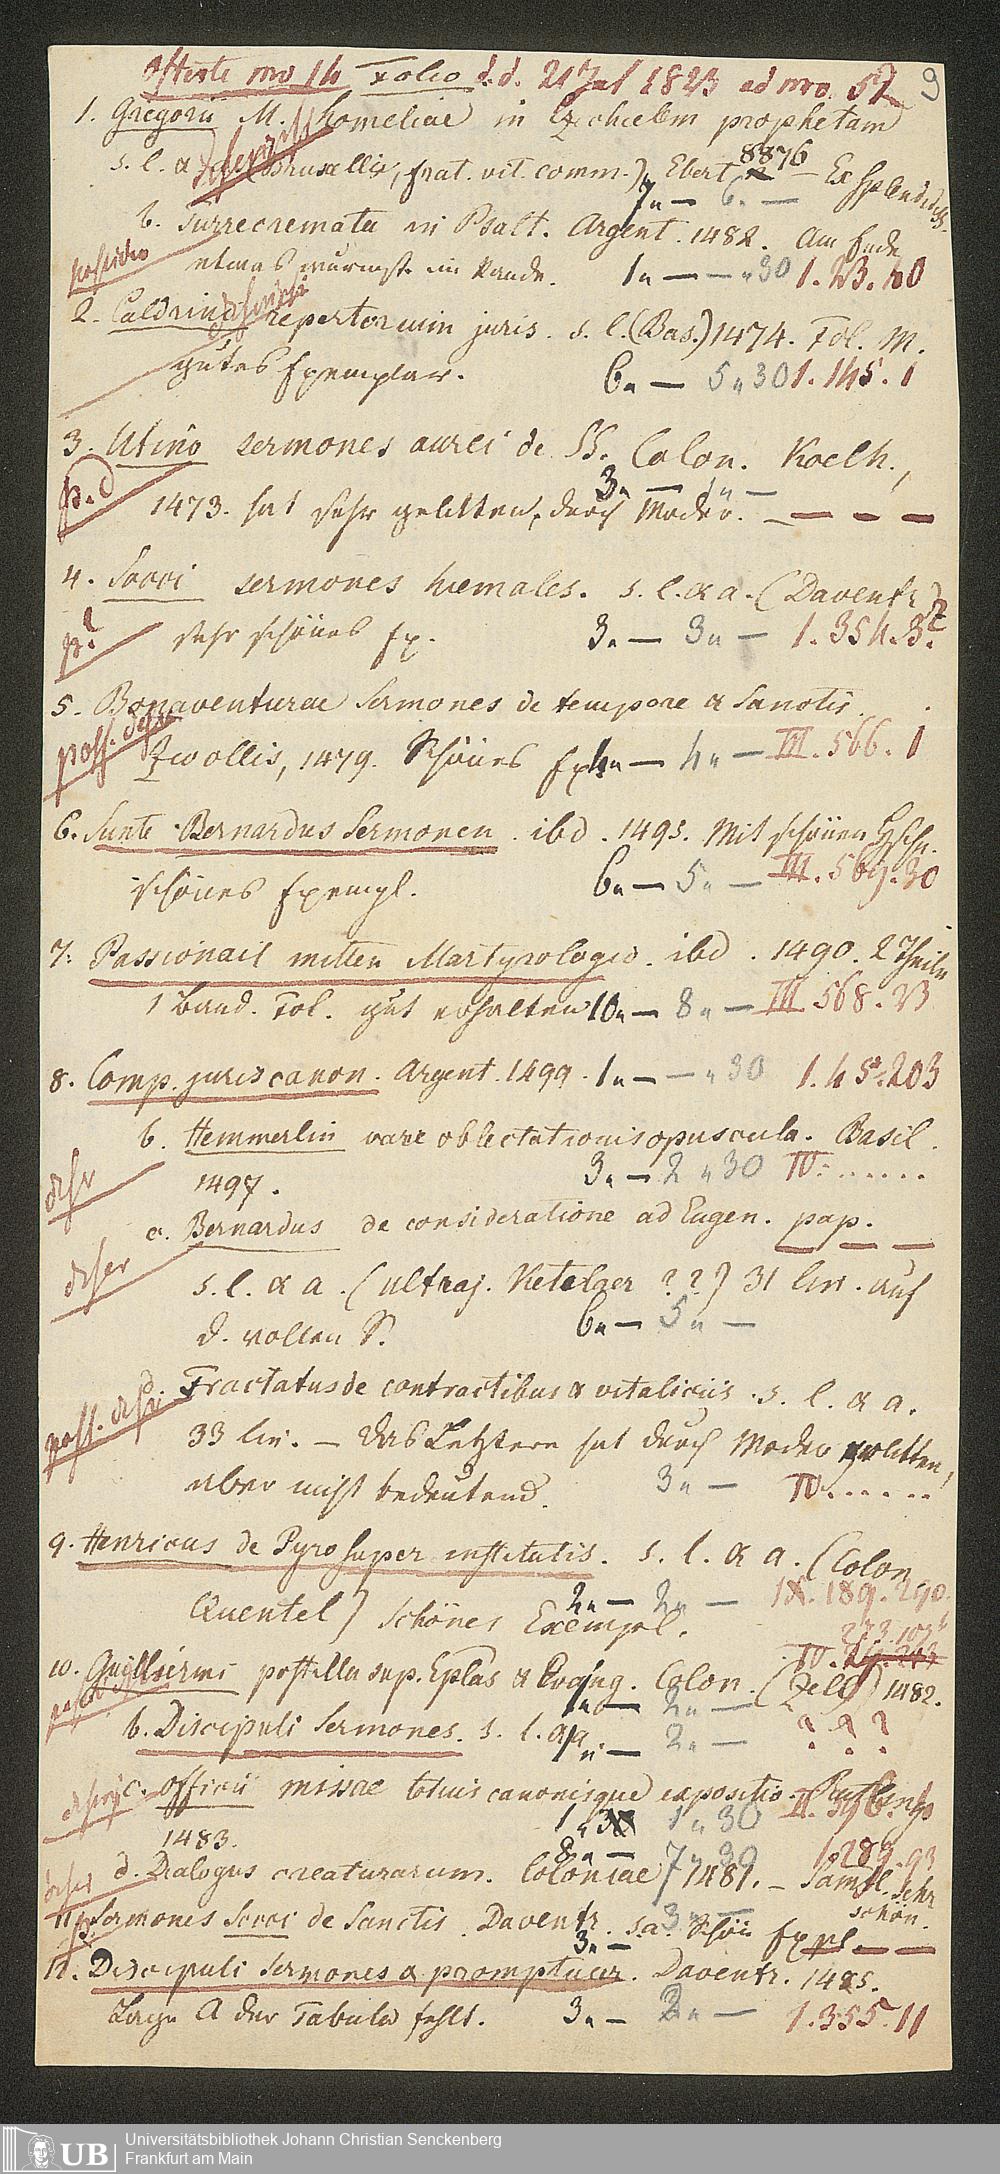 Offerte nro 14 Folio d.d. 21 Jul 1823 ad nro. 52
9
1. Gregorii M. homeliae in Ezechielem prophetam
s. l. & a. (Bruxellis, frat. vit. comm.) Ebert 8876 – Ex splendidiss.
7 „ — 6 „ —
b. Turrecremata in Psalt. Argent. 1482. Am Ende
etwas wurmst. im Rande. 1 „ — — „ 30 1. 23. 40
2. Caldrini repertorium juris. s. l. (Bas.) 1474. Fol. M.
gutes Exemplar. 6 „ — 5 „ 30 1. 145. 1
3. Utino sermones aurei de SS. Colon. Koelh.,
3 „ — 1 „ —
p. d 1473. hat sehr gelitten, durch Moder. – — — —
4. Socci sermones hiemales. s. l. & a. (Daventr.)
sehr schönes Ex. 3 „ — 3 „ — 1. 354. 3.
5. Bonaventurae Sermones de tempore & Sanctis
poss. Zwollis, 1479. Schönes Expl. 4 „ — 4 „ — III. 566. 1
6. Sunte Bernardus Sermonen. ibd. 1495. Mit schönen Hzschn.
schönes Exempl. 6 „ — 5 „ — III. 569. 30
7. Passionail mitten Martyrologio. ibd. 1490. 2 Theile
1 Band. Fol. gut erhalten 10 „ — 8 „ — III. 568. 23
8. Comp. juris canon. Argent. 1499. 1 „ — — „ 30 1. 45. 203
b. Hemmerlin vare oblectationis opuscula. Basil.
1497. 3 „ — 2 „ 30 IV. . . . . . .
c. Bernardus de consideratione ad Eugen. pap.
s. l. & a. (ultraj. Ketelaer ? ?) 31 lin. auf
d. vollen S. 6 „ — 5 „ —
d. Tractatus de contractibus & vitaliciis. s. l. & a.
33 lin. – Das Letztere hat durch Moder gelitten,
aber nicht bedeutend. 3 „ — IV. . . . . .
9. Henricus de Pyro super institutis. s. l. & a. (Colon
Quentel) schönes Exempl. 2 „ — 2 „ — IX. 189. 290.
10. Guillermi postilla sup. Eplas & Evang. Colon. (Zell) 1482.
2 „ —
b. Discipuli Sermones. s. l. & a. 2 „ — ? ? ?
c. Officii missae totius canonisque expositio. Rutlinge
1483. 1 „ 30 1 „ 30 II. 396.
8 „ — 7 „ 30 1. 289. 93
d. Dialogus creaturarum. Coloniae 1481. – Sämtl. sehr
schön.
11. Sermones Socci de Sanctis. Daventr. s. a. Schön Expl. — —
3 „ — 3 „ —
12. Discipuli Sermones & promptuar. Daventr. 1485.
Lage A der Tabula fehlt. 3 „ — 2 „ — 1. 355. 11
UB Universitätsbibliothek Johann Christian Senckenberg
Frankfurt am Main